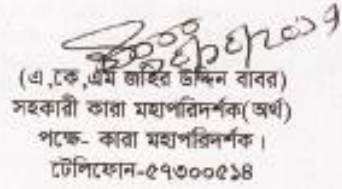 (এ,কে,এম জাহির উদ্দিন বাবর)
সহকারী কারা মহাপরিদর্শক(অর্থ)
পক্ষে- কারা মহাপরিদর্শক।
টেলিফোন-৫৭৩০০৫১৪